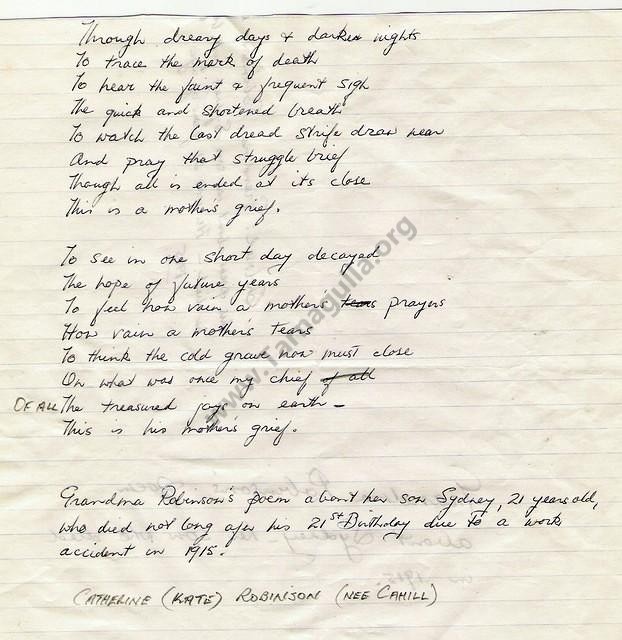 Through dreary days & darker nights
To trace the mark of death
To hear the faint & frequent sigh
The quick and shortened breath
To watch the last dread strife draw near
And pray that struggle brief
Though all is ended at its close
This is a mother's grief.
To see in one short day decayed
The hope of future years
To feel how vain a mothers tears prayers
How vain a mothers tears
To think the cold grave now must close
On what was once my chief of all
OF ALL The treasured joys on earth -
This is his mother's grief.
Grandma Robinson's poem about her son Sydney, 21 years old,
who died not long after his 21st Birthday due to a work
accident in 1915.
CATHERINE (KATE) ROBINSON (NEE CAHILL)
www.Tarnagulla.org